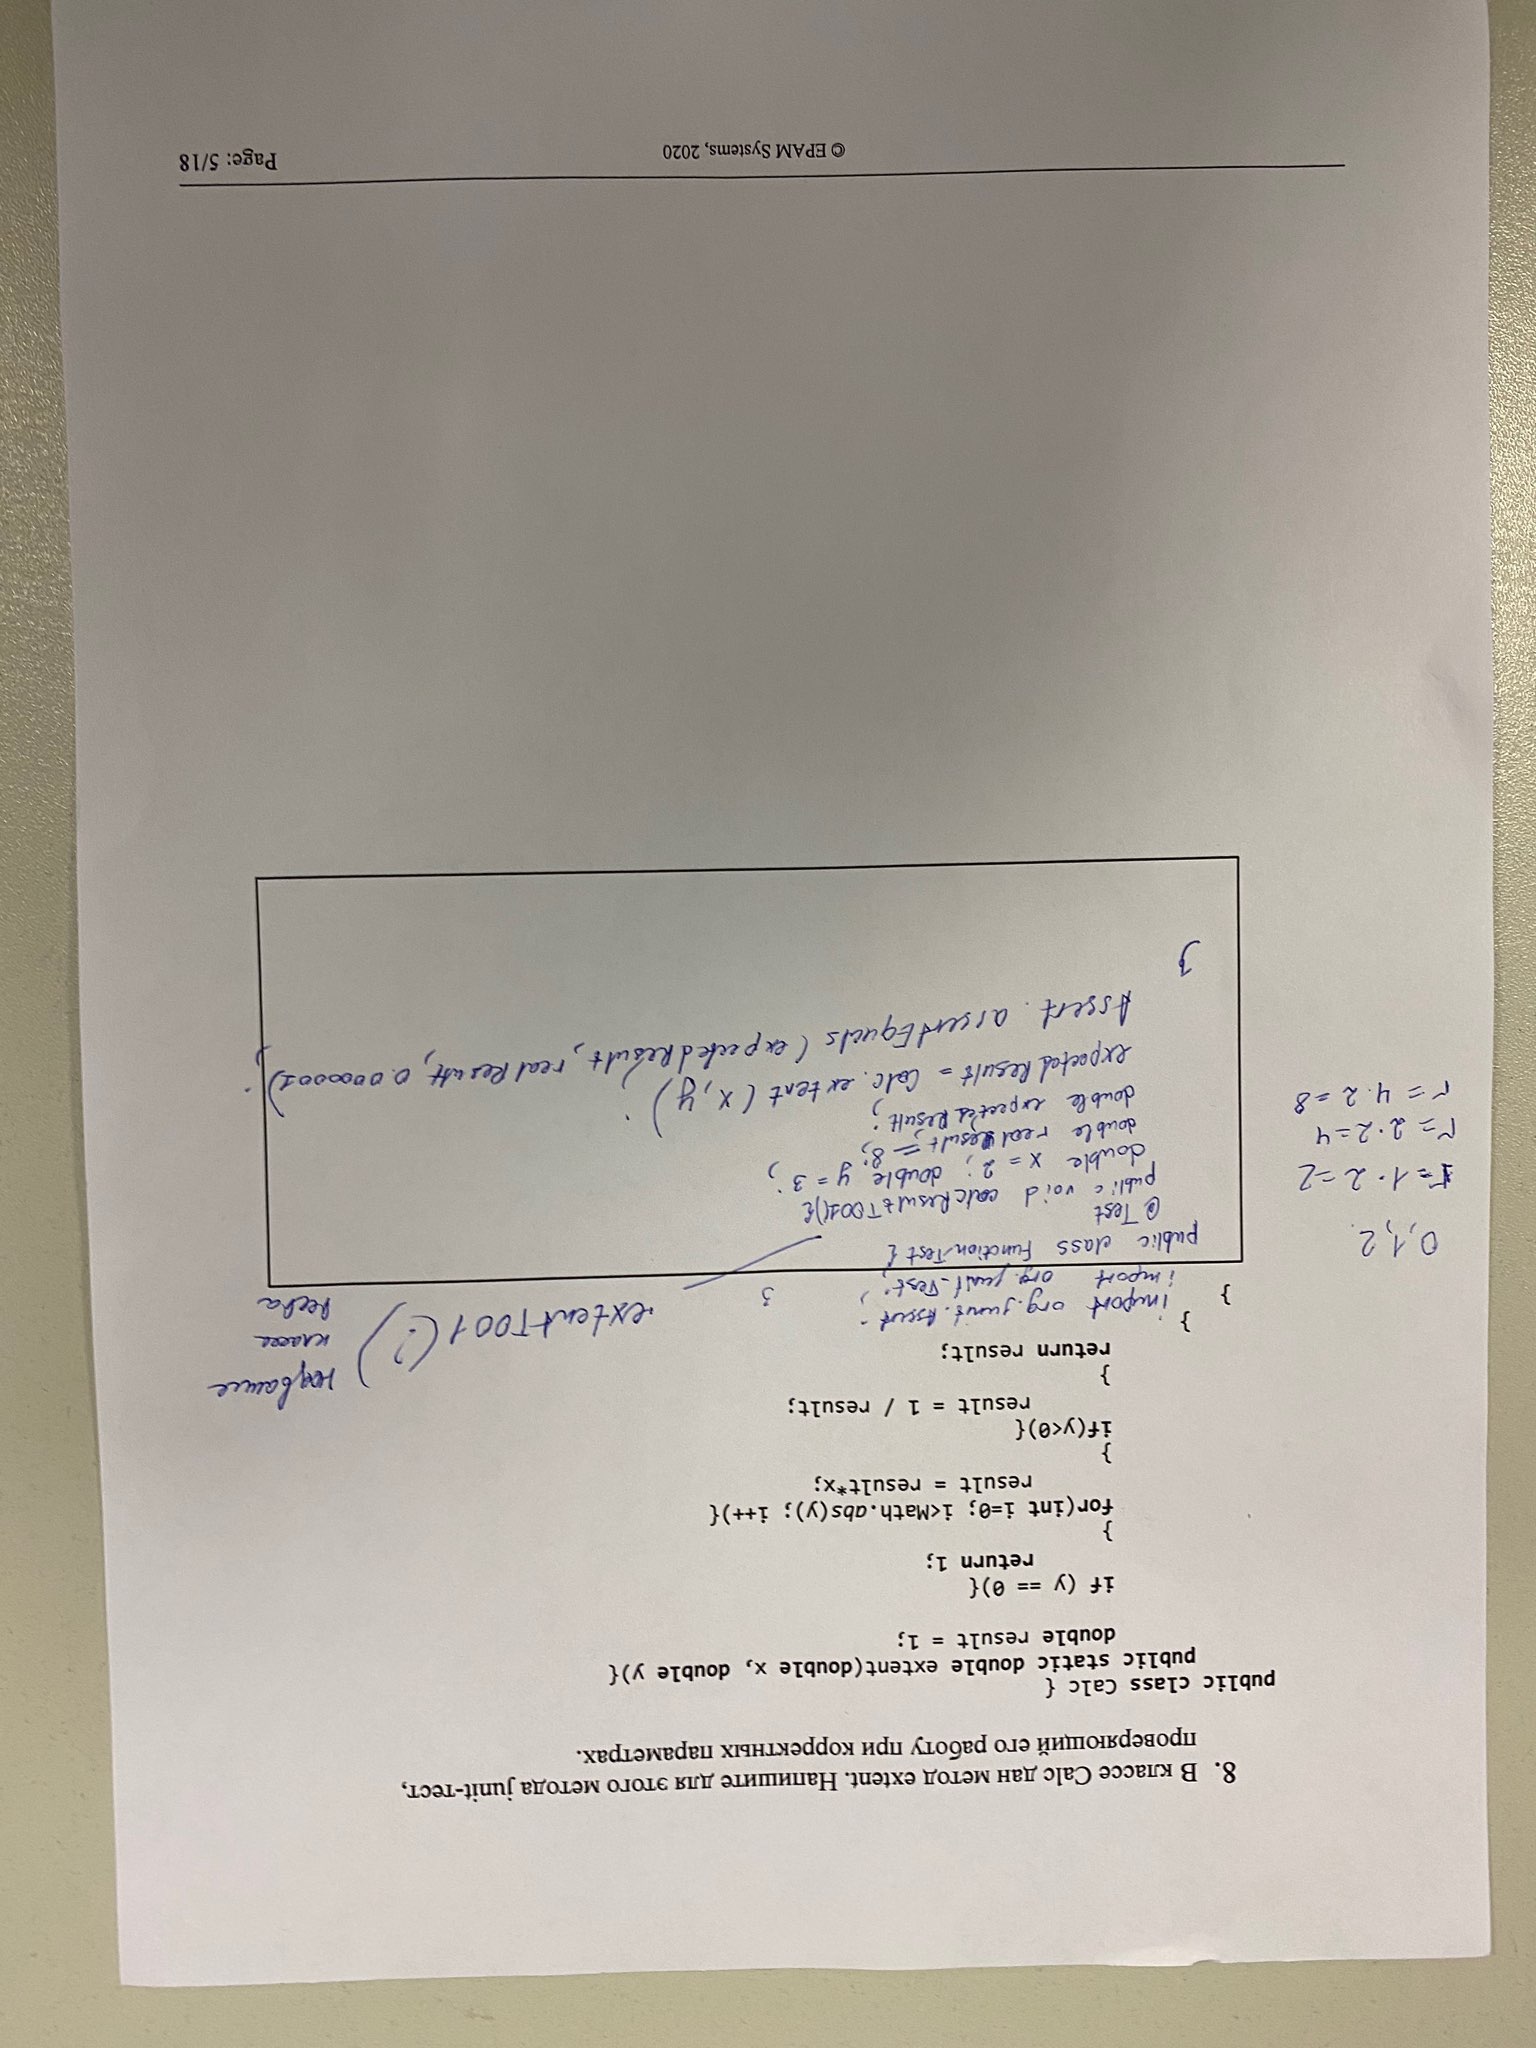 8. В классе Calc дан метод extent. Напишите для этого метода junit-тест,
проверяющий его работу при корректных параметрах.
public class Calc {
public static double extent(double x, double y){
double result = 1;
if (y == 0){
return 1;
}
for(int i=0; i<Math.abs(y); i++){
result = result*x;
}
if(y<0){
result = 1 / result;
}
return result;
}
}
название
класса
extentT001(?)
import org.junit.Assert;
import org.junit.Test;
public class FunctionTest {
@Test
public void calcResultT001(){
double x = 2; double y = 3;
double realResult = 8;
double expectedResult;
expectedResult = Calc.extent (x, y);
Assert.assertEquals (expectedResult, realResult, 0.000001);
}
3
0,1,2.
r=1·2=2
r=2·2=4
r=4·2=8
© EPAM Systems, 2020
Page: 5/18